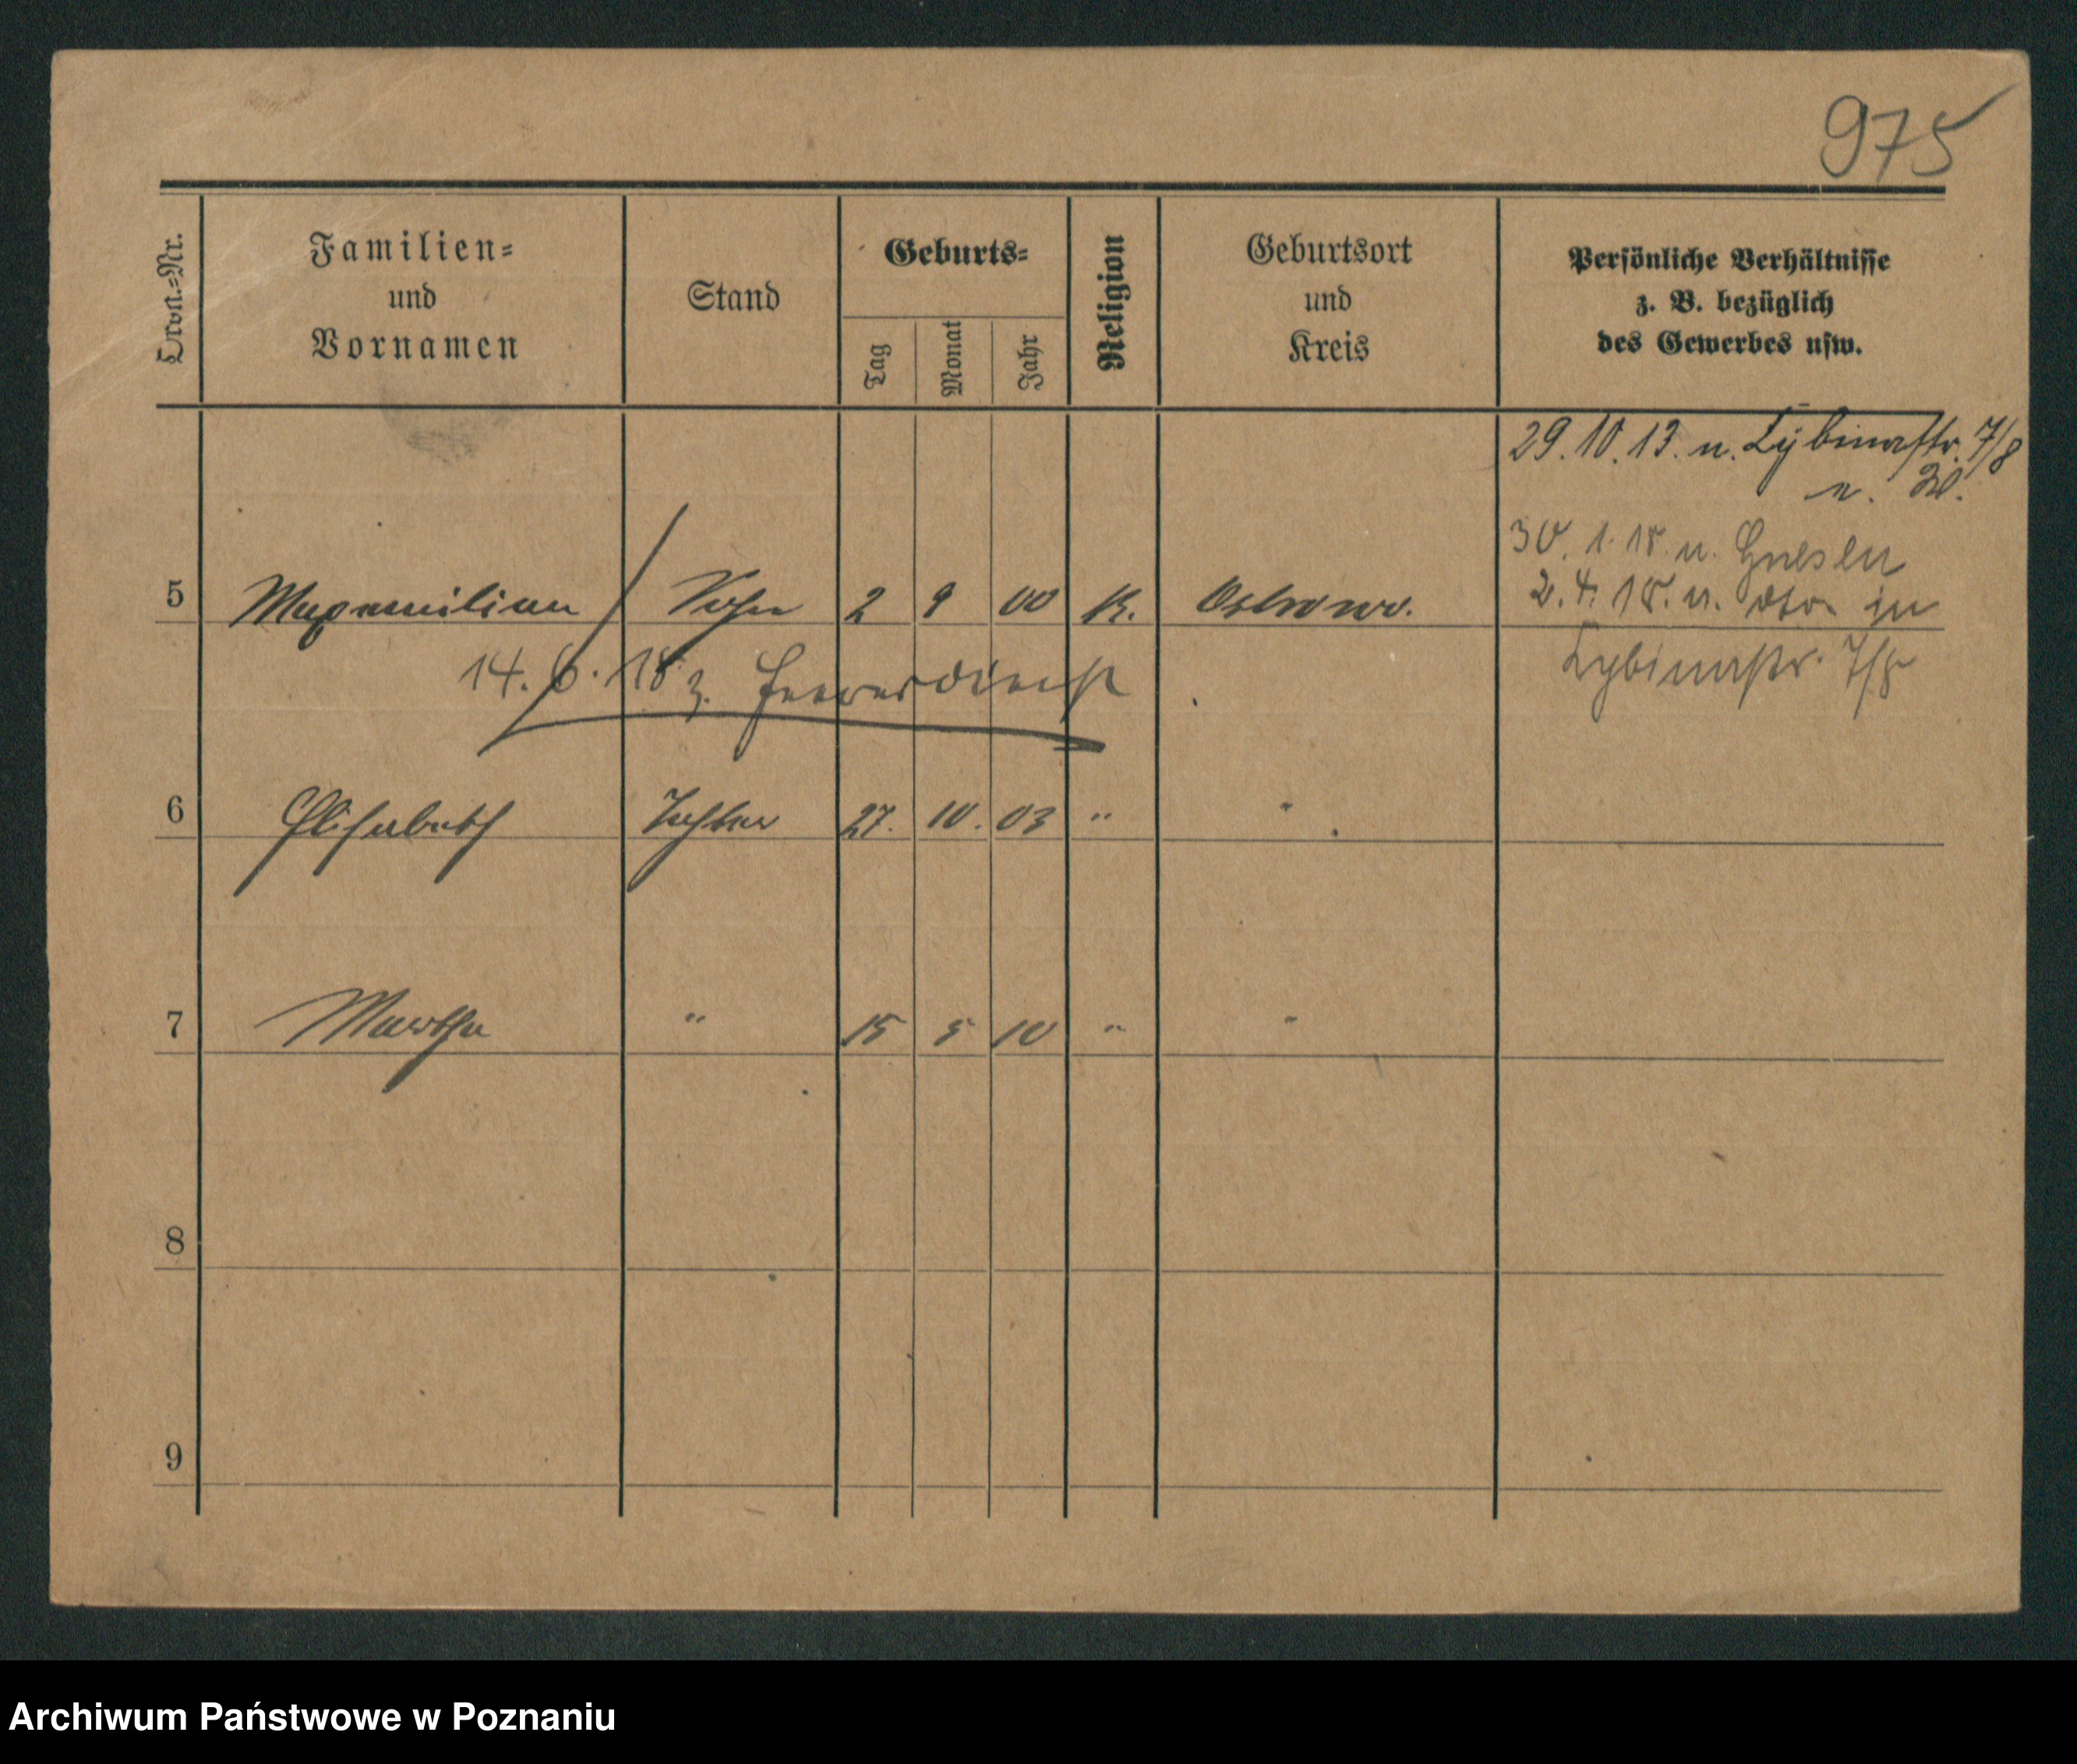 975
Ordn.-Nr.
Familien-
und
Vornamen
Stand
Geburts-
Tag
Monat
Jahr
Religion
Geburtsort
und
Kreis
Persönliche Verhältnisse
z. B. bezüglich
des Gewerbes usw.
29. 10. 13. n. Lybinastr. 7/8
n.
30. 1. 18. n. Gnesen
5 Maxmilian Sohn 2 9 00 K. Ostrowo.
2. 4. 18. n. in
14. 6. 18 z. Heeresdienst
Lybinastr. 7/8
6 Elisabeth Tochter 27. 10. 03 " "
7 Martha " 15 5 10 " "
8
9
Archiwum Państwowe w Poznaniu